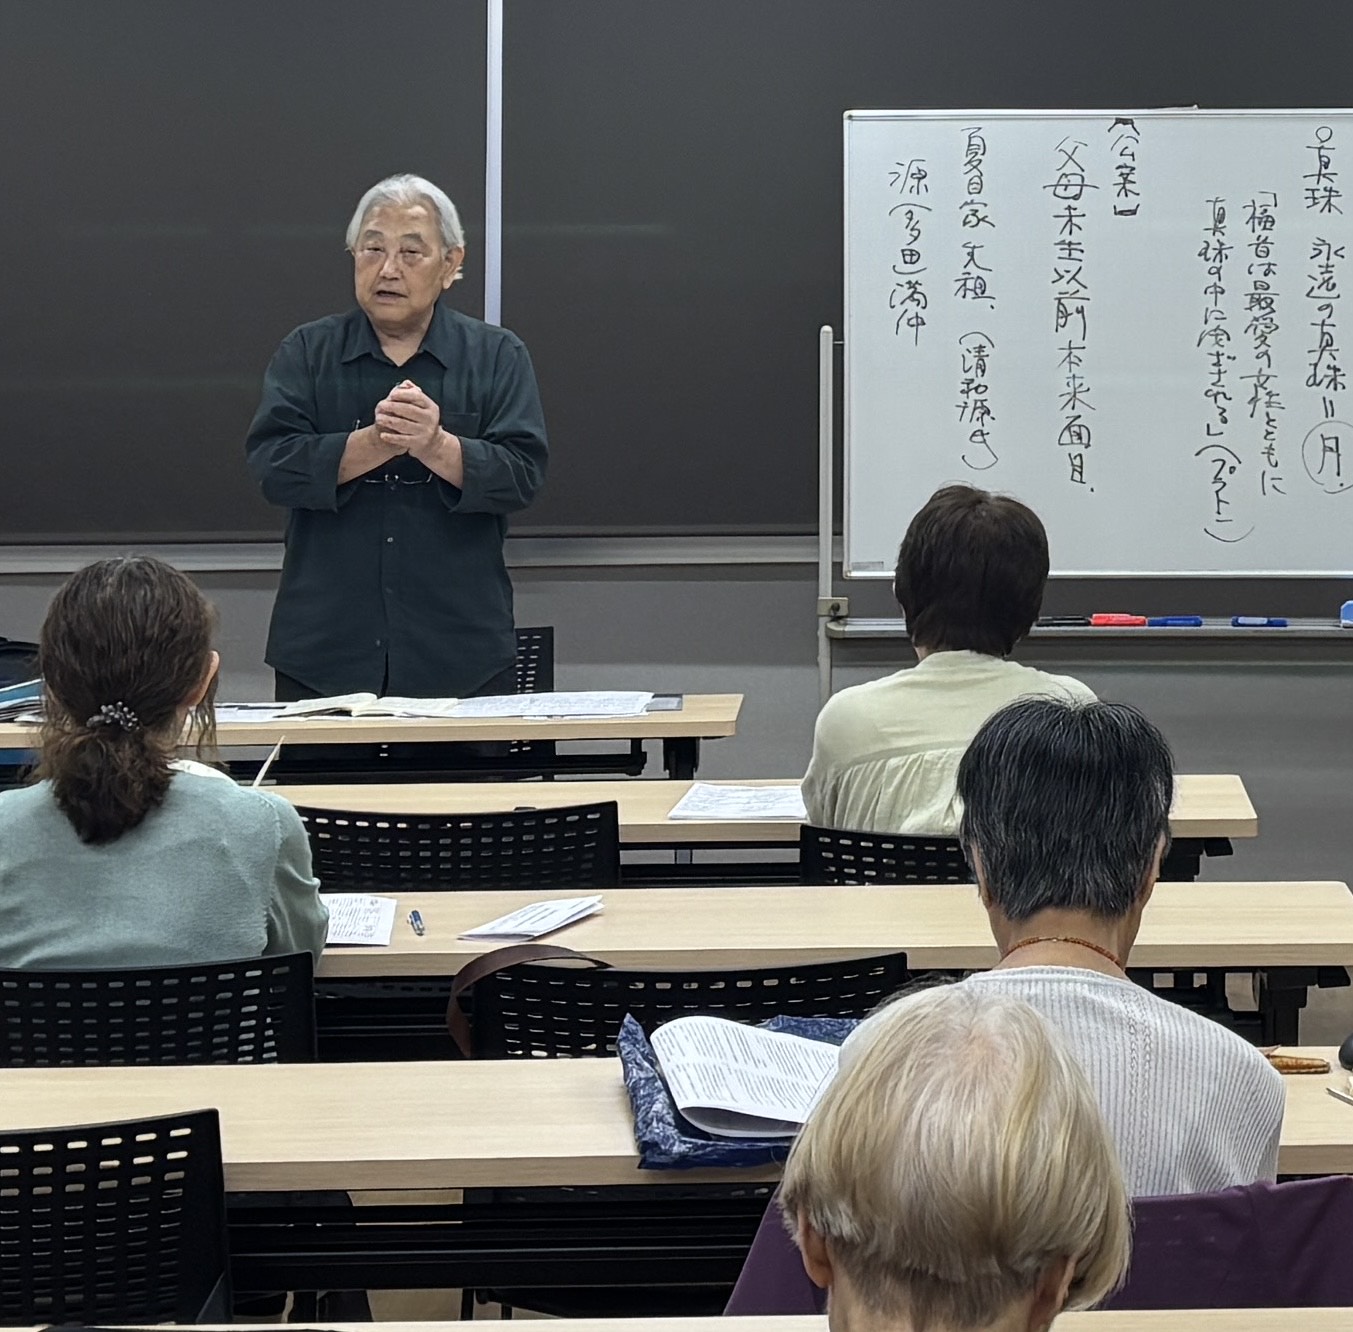 ○真珠 永遠の真珠=月.
「福音は最愛の女性とともに
真珠の中に注ぎされる」(プラトン)
【公案】
父母未生以前本来面目.
夏目家先祖.(清和源氏)
源(多田)満仲